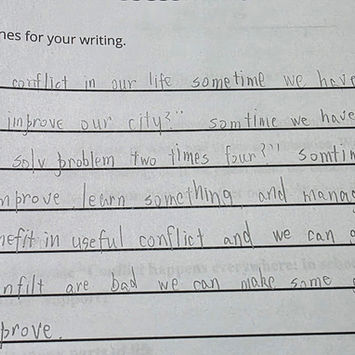 nes for your writing.
conflict in our life sometime we have
improve our city?" somtime we have
solv problem two times four?" somtim
mprove, learn something, and manag
nefit in useful conflict and we can
nfilt are bad we can make some
prove.